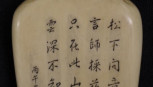 松下問童
言師採藥
只在此山
雲深不知